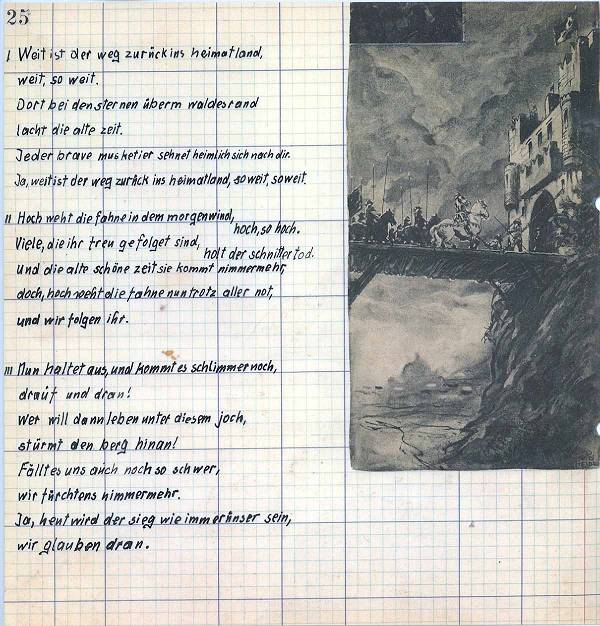 25
I Weit ist der weg zurück ins heimatland,
weit, so weit.
Dort bei den sternen überm waldesrand
lacht die alte zeit.
Jeder brave musketier sehnet heimlich sich nach dir.
Ja, weit ist der weg zurück ins heimatland, so weit, so weit.
II Hoch weht die fahne in dem morgenwind,
hoch, so hoch.
Viele, die ihr treu gefolget sind,
holt der schnitter tod.
und die alte schöne zeit sie kommt nimmermehr,
doch, hoch weht die fahne nun trotz aller not,
und wir folgen ihr.
III Nun haltet aus, und kommt es schlimmer noch,
drauf und dran!
Wer will dann leben unter diesem joch,
stürmt den berg hinan!
Fällt es uns auch noch so schwer,
wir fürchtens nimmermehr.
Ja, heut wird der sieg wie immer ünser sein,
wir glauben dran.